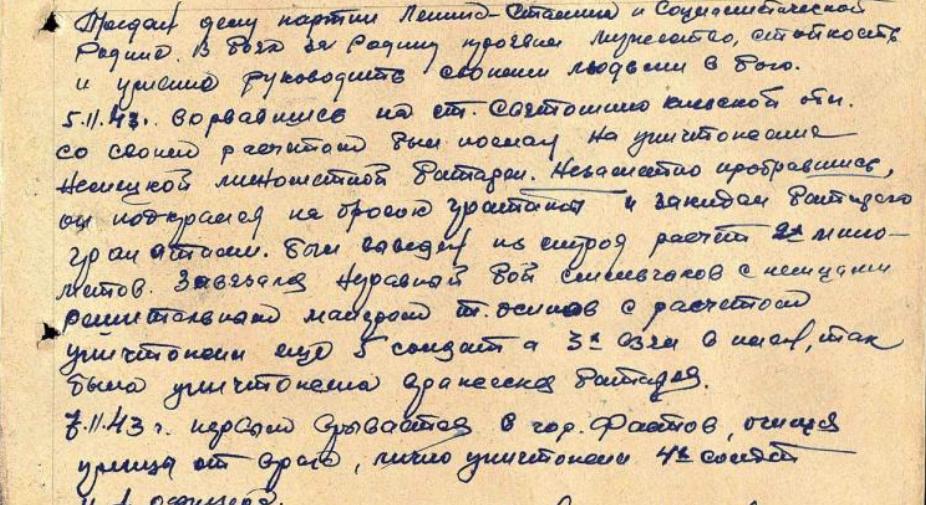 Предан делу партии Ленина-Сталина и Социалистической
Родине. В боях за Родину проявил мужество, стойкость
и умение руководить своими людьми в бою.
5.11.43г. ворвавшись на ст. Святошино киевской обл.
со своим расчетом был послан на уничтожение
Немецкой минометной батареи. Незаметно пробравшись,
он подкрался на бросок гранаты и закидал батарею
гранатами. был выведен из строя расчет 2х мино-
метов. Завязался неравный бой смельчаков с немцами
решительным маневром т. осипов с расчетом
уничтожил еще 5 солдат а 3х взял в плен, так
была уничтожена вражеская батарея.
7.11.43 г. первым врывается в гор. Фастов, очищая
улицы от врага, лично уничтожил 4х солдат
и 1 офицера.